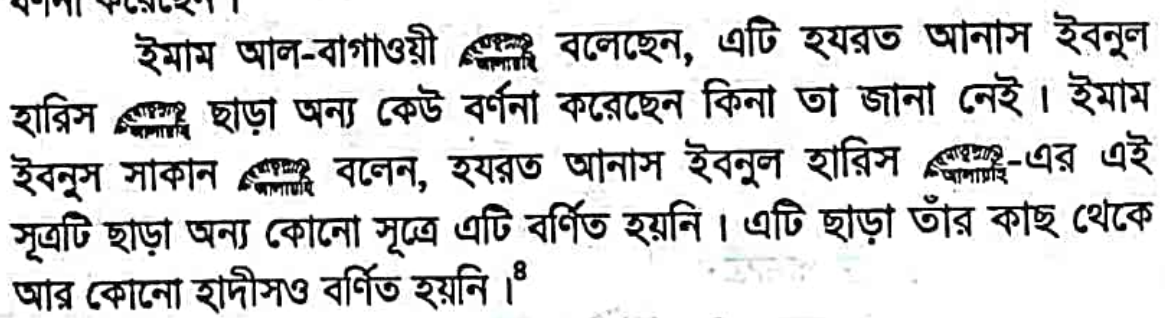 ইমাম আল-বাগাওয়ী বলেছেন, এটি হযরত আনাস ইবনুল
হারিস ছাড়া অন্য কেউ বর্ণনা করেছেন কিনা তা জানা নেই। ইমাম
ইবনুস সাকান বলেন, হযরত আনাস ইবনুল হারিস -এর এই
সূত্রটি ছাড়া অন্য কোনো সূত্রে এটি বর্ণিত হয়নি। এটি ছাড়া তাঁর কাছ থেকে
আর কোনো হাদীসও বর্ণিত হয়নি।⁴